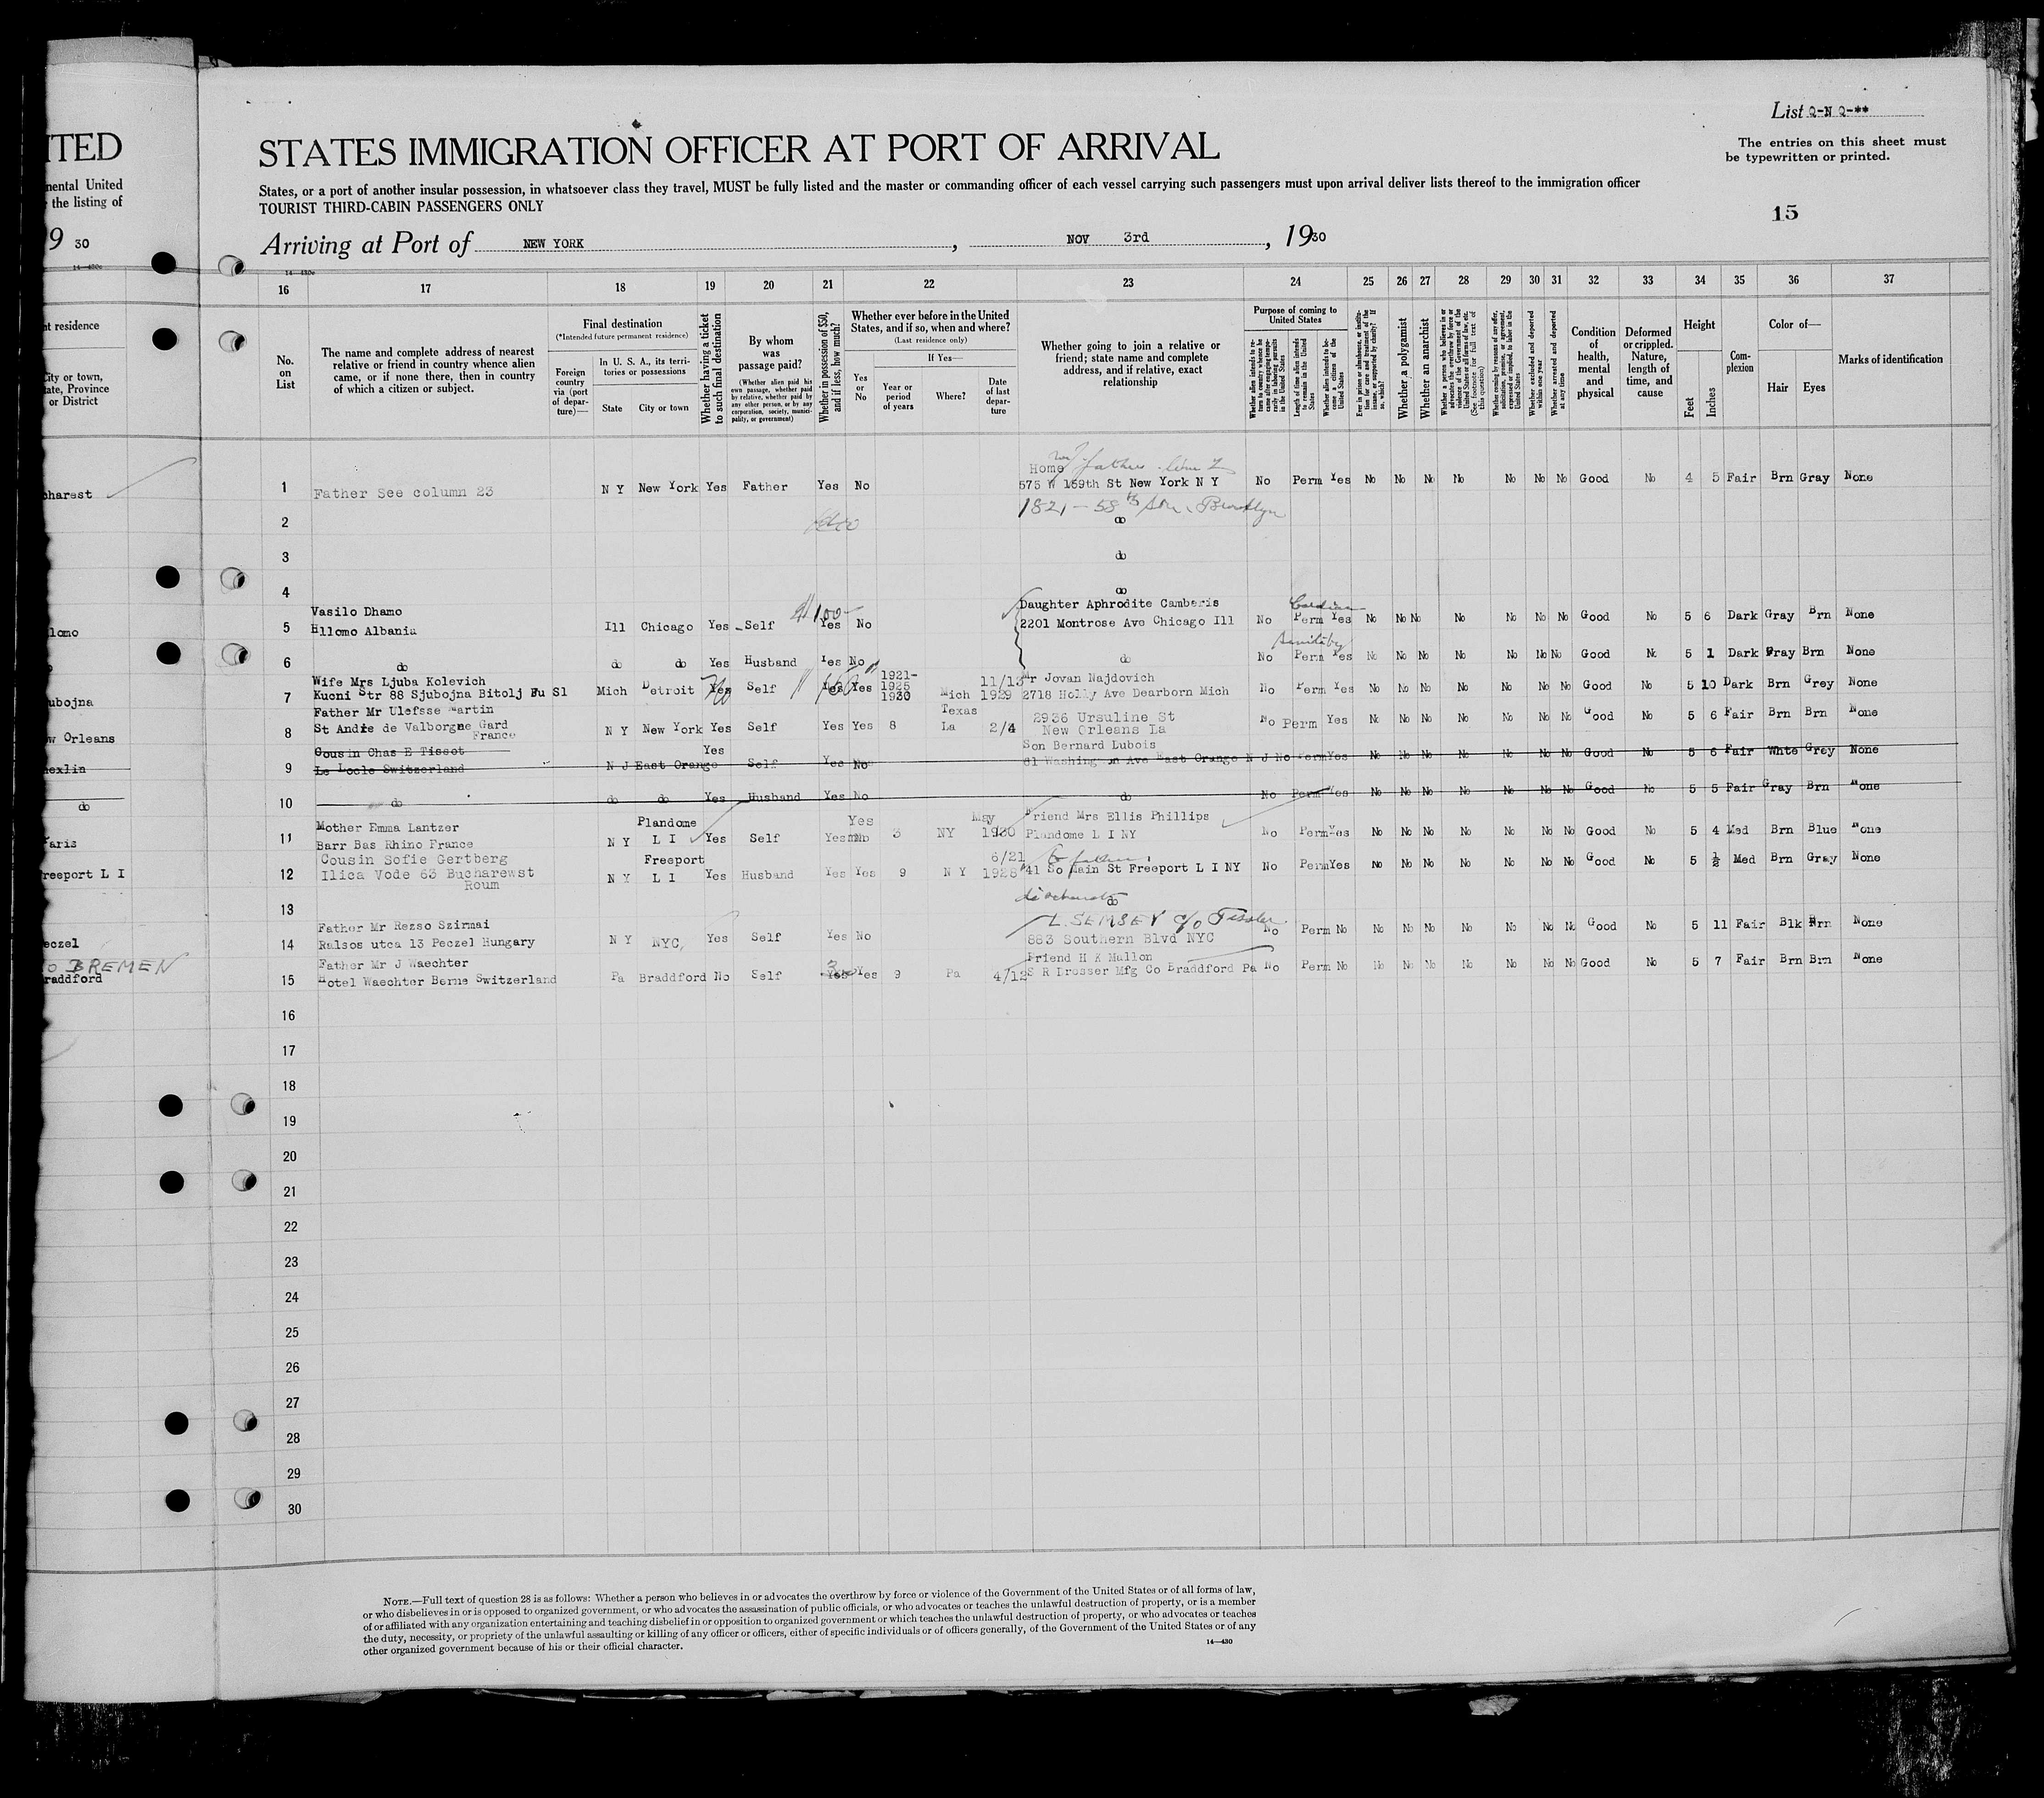 ITED
nental United
the listing of
9 30
14—430c
nt residence
City or town,
tate, Province
or District
charest
lomo
ubojna
w Orleans
hexlin
do
Paris
reeport L I
eczel
o BREMEN
raddford
List Q-N Q-**
The entries on this sheet must
be typewritten or printed.
15
STATES IMMIGRATION OFFICER AT PORT OF ARRIVAL
States, or a port of another insular possession, in whatsoever class they travel, MUST be fully listed and the master or commanding officer of each vessel carrying such passengers must upon arrival deliver lists thereof to the immigration officer
TOURIST THIRD-CABIN PASSENGERS ONLY
Arriving at Port of NEW YORK, NOV 3rd, 1930
14—430c
16 17 18 19 20 21 22 23 24 25 26 27 28 29 30 31 32 33 34 35 36 37
No.
on
List
The name and complete address of nearest
relative or friend in country whence alien
came, or if none there, then in country
of which a citizen or subject.
Final destination
(*Intended future permanent residence)
Foreign
country
via (port
of depar-
ture)—
In U. S. A., its terri-
tories or possessions
State City or town
Whether having a ticket
to such final destination
By whom
was
passage paid?
(Whether alien paid his
own passage, whether paid
by relative, whether paid by
any other person, or by any
corporation, society, munici-
pality, or government)
Whether in possession of $50,
and if less, how much?
Whether ever before in the United
States, and if so, when and where?
(Last residence only)
Yes
or
No
If Yes—
Year or
period
of years
Where?
Date
of last
depar-
ture
Whether going to join a relative or
friend; state name and complete
address, and if relative, exact
relationship
Purpose of coming to
United States
Whether alien intends to re-
turn to country whence he
came after engaging tempo-
rarily in laboring pursuits
in the United States
Length of time alien intends
to remain in the United
States
Whether alien intends to be-
come a citizen of the
United States
Ever in prison or almshouse, or institu-
tion for care and treatment of the
insane, or supported by charity? If
so, which?
Whether a polygamist
Whether an anarchist
Whether a person who believes in or
advocates the overthrow by force or
violence of the Government of the
United States or all forms of law, etc.
(See footnote for full text of
this question)
Whether coming by reasons of any offer,
solicitation, promise, or agreement,
expressed or implied, to labor in the
United States
Whether excluded and deported
within one year
Whether arrested and deported
at any time
Condition
of
health,
mental
and
physical
Deformed
or crippled.
Nature,
length of
time, and
cause
Height
Feet Inches
Com-
plexion
Color of—
Hair Eyes
Marks of identification
Home father
1 Father See column 23 N Y New York Yes Father Yes No 575 W 159th St New York N Y No Perm Yes No No No No No No No Good No 4 5 Fair Brn Gray None
1821 — 58th Brooklyn
2 do
3 do
4 do
Vasilo Dhamo $100 Daughter Aphrodite Camberis
5 Hllomo Albania Ill Chicago Yes Self Yes No 2201 Montrose Ave Chicago Ill No Perm Yes No No No No No No No Good No 5 6 Dark Gray Brn None
6 do do do Yes Husband Yes No do No Perm Yes No No No No No No No Good No 5 1 Dark Gray Brn None
Wife Mrs Ljuba Kolevich 1921- 11/13 Mr Jovan Najdovich
7 Kucni Str 88 Sjubojna Bitolj Yu Sl Mich Detroit Yes Self Yes Yes 1925 1930 Mich 1929 2718 Holly Ave Dearborn Mich No Perm Yes No No No No No No No Good No 5 10 Dark Brn Grey None
Father Mr Ulefsse Martin Texas 2936 Ursuline St
8 St Andre de Valborgne Gard France N Y New York Yes Self Yes Yes 8 La 2/4 New Orleans La No Perm Yes No No No No No No No Good No 5 6 Fair Brn Brn None
Cousin Chas E Tissot Yes Son Bernard Lubois
9 Le Locle Switzerland N J East Orange Self Yes No 61 Washington Ave East Orange N J No Perm Yes No No No No No No No Good No 5 6 Fair Whte Grey None
10 do do do Yes Husband Yes No do No Perm Yes No No No No No No No Good No 5 5 Fair Gray Brn None
Mother Emma Lantzer Plandome Yes May Friend Mrs Ellis Phillips
11 Barr Bas Rhino France N Y L I Yes Self Yes No 3 NY 1930 Plandome L I NY No Perm Yes No No No No No No No Good No 5 4 Med Brn Blue None
Cousin Sofie Gertberg Freeport 6/21 to father
12 Ilica Vode 63 Bucharewst Roum N Y L I Yes Husband Yes Yes 9 N Y 1928 41 So Main St Freeport L I NY No Perm Yes No No No No No No No Good No 5 ½ Med Brn Gray None
13 do
Father Mr Rezso Szirmai L. SEMSEY c/o Tessler
14 Ralsos utca 13 Peczel Hungary N Y NYC, Yes Self Yes No 883 Southern Blvd NYC No Perm No No No No No No No No Good No 5 11 Fair Blk Brn None
Father Mr J Waechter Friend H K Mallon
15 Hotel Waechter Berne Switzerland Pa Braddford No Self Yes Yes 9 Pa 4/12 S R Drosser Mfg Co Braddford Pa No Perm No No No No No No No No Good No 5 7 Fair Brn Brn None
16
17
18
19
20
21
22
23
24
25
26
27
28
29
30
NOTE.—Full text of question 28 is as follows: Whether a person who believes in or advocates the overthrow by force or violence of the Government of the United States or of all forms of law,
or who disbelieves in or is opposed to organized government, or who advocates the assassination of public officials, or who advocates or teaches the unlawful destruction of property, or is a member
of or affiliated with any organization entertaining and teaching disbelief in or opposition to organized government or which teaches the unlawful destruction of property, or who advocates or teaches
the duty, necessity, or propriety of the unlawful assaulting or killing of any officer or officers, either of specific individuals or of officers generally, of the Government of the United States or of any
other organized government because of his or their official character.
14—430